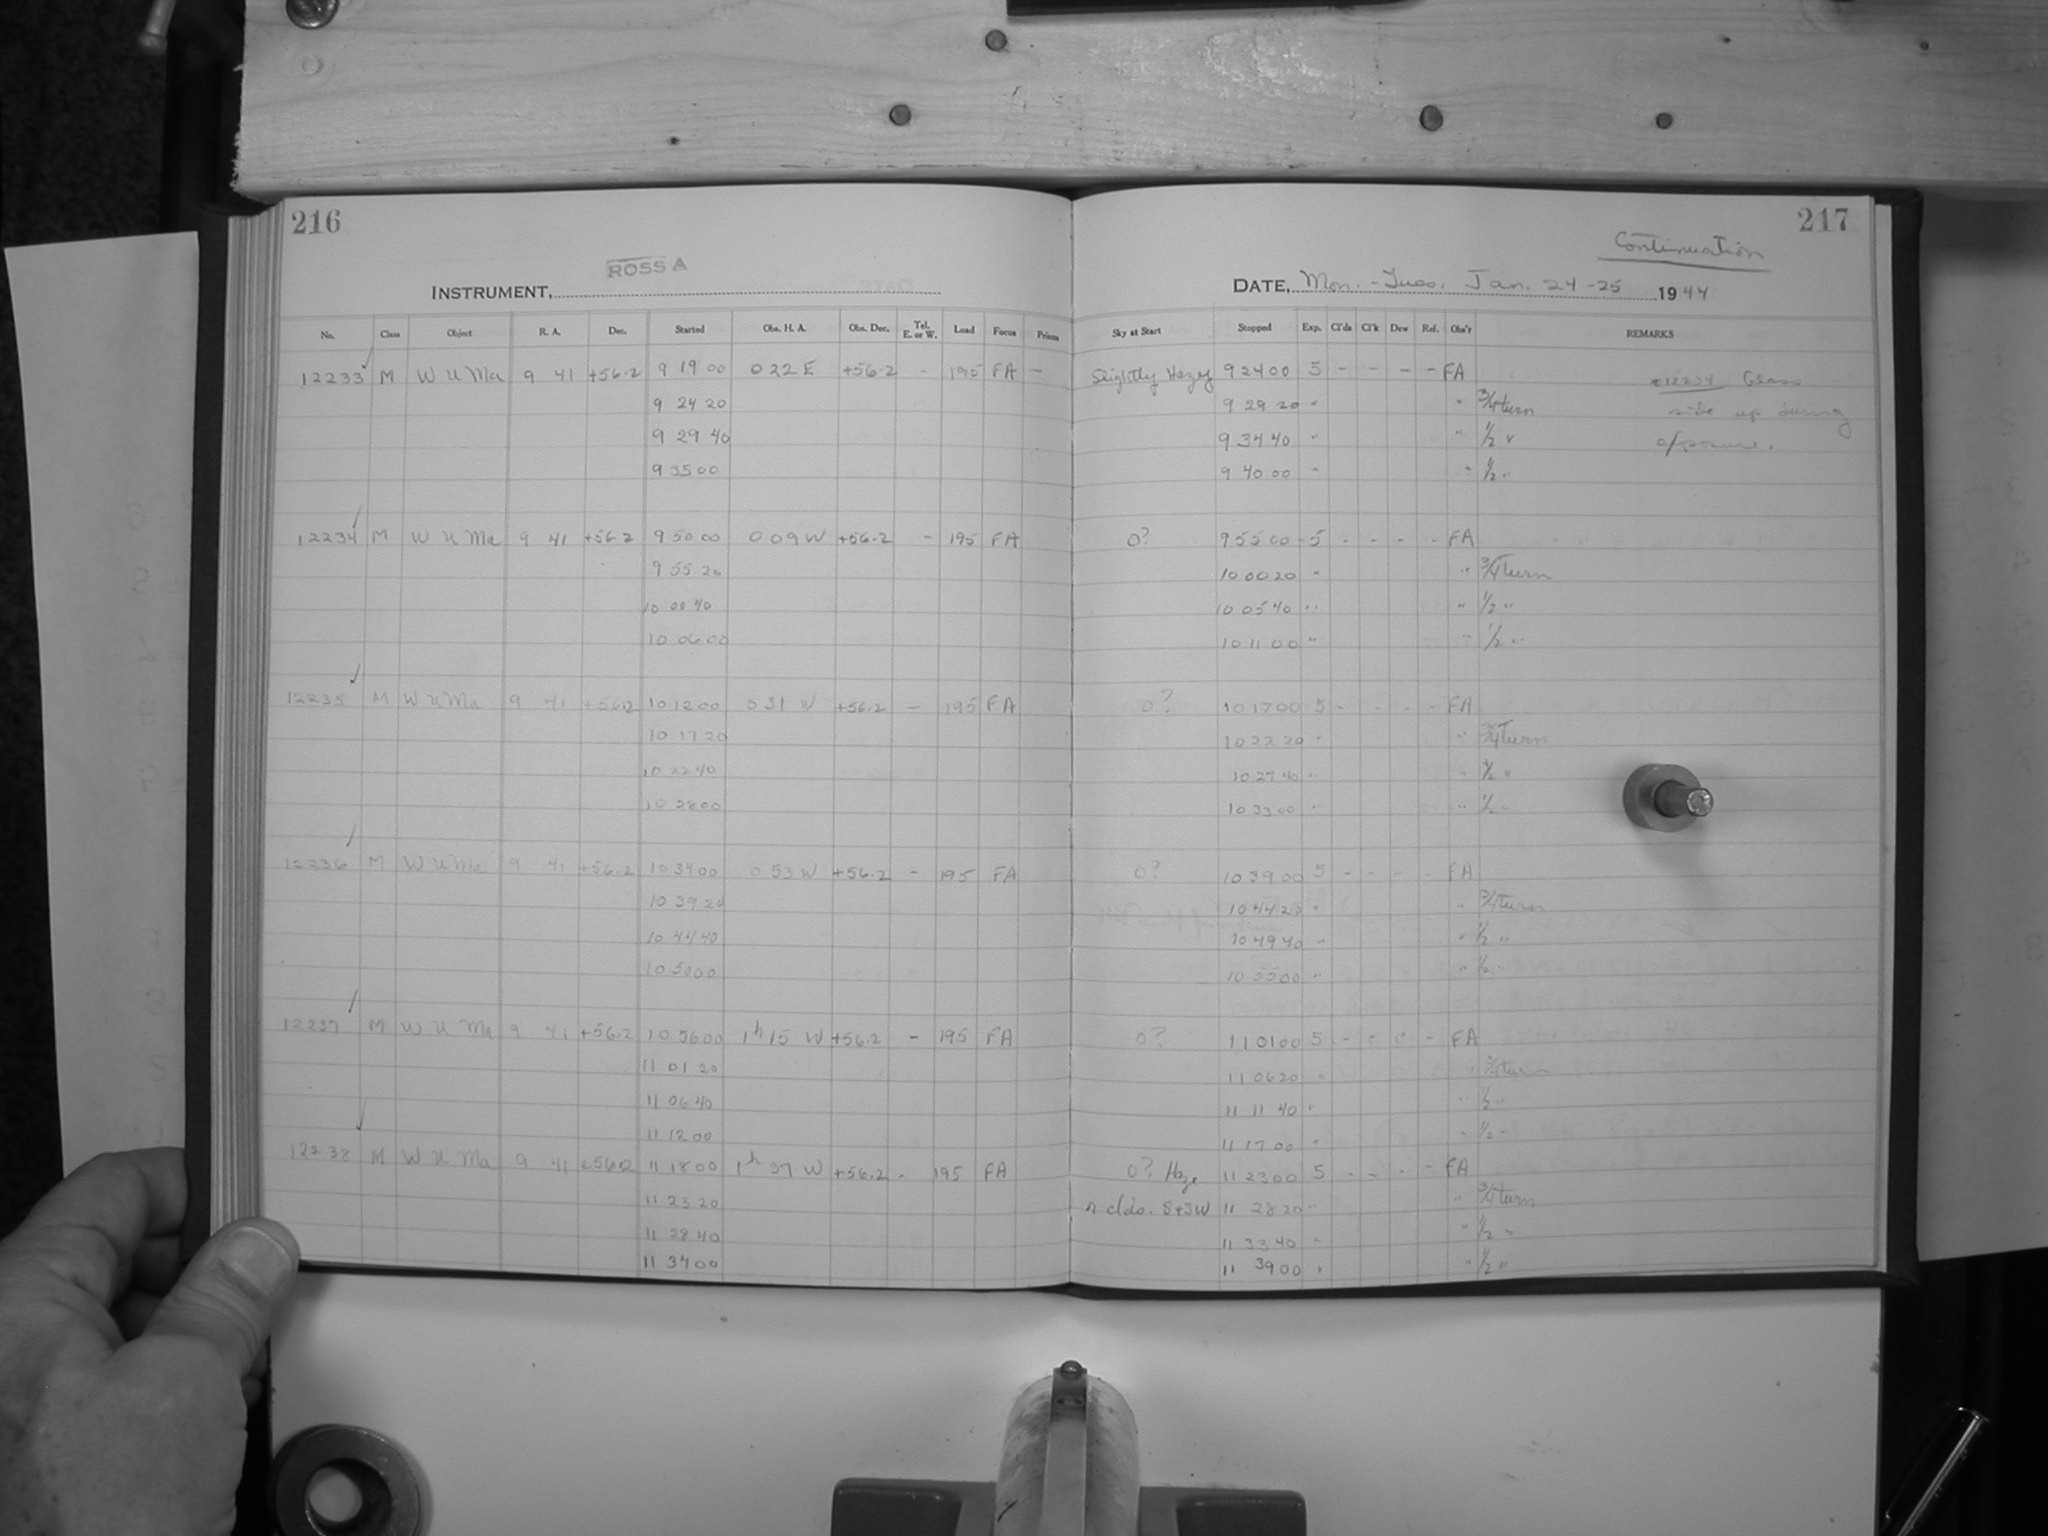 216
217
Continuation
ROSS A
INSTRUMENT,
DATE, Mon. - Tues. Jan. 24 - 25 1944
No. Class Object R. A. Dec. Started Obs. H. A. Obs. Dec. Tel. E. or W. Load Focus Prisms Sky at Start Stopped Exp. Cl'ds Cl'k Dew Ref. Obs'r REMARKS
12233 M W U Ma 9 41 +56.2 9 19 00 0 22 E +56.2 - 195 FA - Slightly Hazy 9 24 00 5 - - - - FA *12234 Glass
9 24 20 9 29 20 " " 3/4 turn side up during
9 29 40 9 34 40 " " 1/2 " exposure.
9 35 00 9 40 00 " " 1/2 "
12234 M W U Ma 9 41 +56.2 9 50 00 0 09 W +56.2 - 195 FA 0? 9 55 00 5 - - - - FA
9 55 20 10 00 20 " " 3/4 turn
10 00 40 10 05 40 " " 1/2 "
10 06 00 10 11 00 " " 1/2 "
12235 M W U Ma 9 41 +56.2 10 12 00 0 31 W +56.2 - 195 FA 0? 10 17 00 5 - - - - FA
10 17 20 10 22 20 " " 3/4 turn
10 22 40 10 27 40 " " 1/2 "
10 28 00 10 33 00 " " 1/2 "
12236 M W U Ma 9 41 +56.2 10 34 00 0 53 W +56.2 - 195 FA 0? 10 39 00 5 - - - - FA
10 39 20 10 44 20 " " 3/4 turn
10 44 40 10 49 40 " " 1/2 "
10 50 00 10 55 00 " " 1/2 "
12237 M W U Ma 9 41 +56.2 10 56 00 1h 15 W +56.2 - 195 FA 0? 11 01 00 5 - - - - FA
11 01 20 11 06 20 " " 3/4 turn
11 06 40 11 11 40 " " 1/2 "
11 12 00 11 17 00 " " 1/2 "
12238 M W U Ma 9 41 +56.2 11 18 00 1h 37 W +56.2 - 195 FA 0? Haze 11 23 00 5 - - - - FA
11 23 20 clds. S+SW 11 28 20 " " 3/4 turn
11 28 40 11 33 40 " " 1/2 "
11 34 00 11 39 00 " " 1/2 "